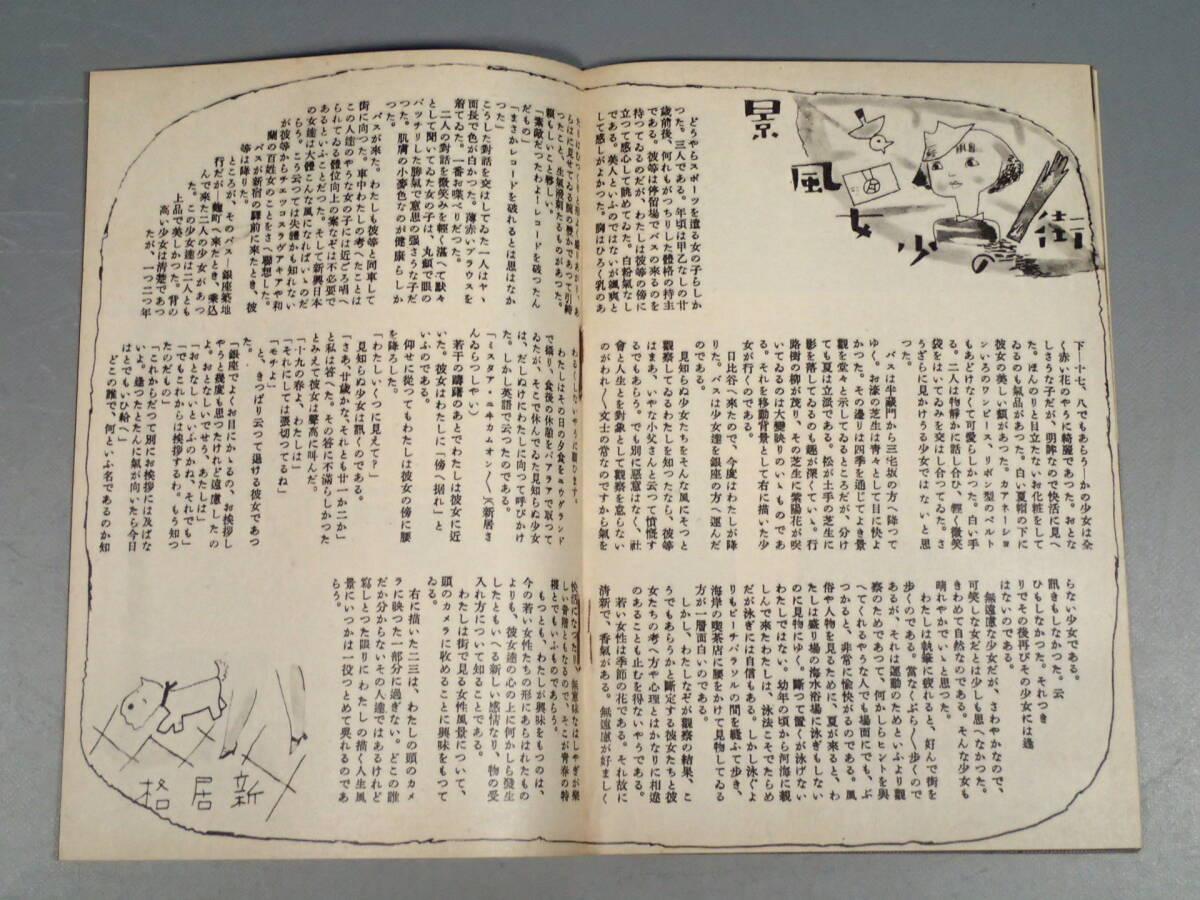 街の少女風景
どうやらスポーツを遣る女の子らしか
つた。三人である。年頃は甲乙なしの廿
歳前後、何れもがつちりした體格の持主
である。彼等は停留場でバスの來るのを
持つてゐるのだが、わたしは彼等の傍に
立つて感心して眺めてゐた。白粉氣なし
である。美人といふのではないが颯爽と
して感じがよかつた。胸はひろく乳のあ
つたこと、生氣溌剌たるものがあつた。
頼もしいこと夥しい。
「素敵だつたわよ！レコードを破つたん
だもの」
「まさかレコードを破れるとは思はなか
つた」
こうした對話を交はしてゐた一人はやゝ
面長で色が白かつた。薄赤いブラウスを
着てゐた。一番お喋べりだつた。
二人の對話を微笑みを輕く湛へて默々
として聞いてゐた女の子は、丸顏で眼の
パツチリした勝氣で意思の强さうな子だ
つた。肌膚の小麥色なのが健康らしか
つた。
バスが來た。わたしも彼等と同車して
街に向つた。車中わたしの考へたことは
この人達のやうな女の子には近ごろ唱へ
られてゐる體位向上の案なぞは不必要で
あるといふことだつた。そして新興日本
の女達は大體こんな風になればいゝのだ
らう。こう云つては失禮かも知れない
が彼等からチエツコスラヴアキアや和
蘭の百姓女のことをさへ聯想した。
バスが新宿の驛前に來たとき、彼
等は降りた。
ところが、そのバス—銀座築地
行だが—麹町へ來たとき、乘込
んで來た二人の少女があつ
た。この少女達は二人とも
上品で美しかつた。背の
高い少女は清楚であつ
たが、一つ二つ年
下—十七、八でもあらう—かの少女は全
く赤い花のやうに綺麗であつた。おとな
しさうな子だが、明眸なので快活に見へ
た。ほんのりと目立たないお化粧をして
ゐるのも氣品があつた。白い夏帽の下に
彼女の美しい顏があつた。カアネーショ
ンいろのワンピース、リボン型のベルト
もあどけなくて可愛らしかつた。白い手
袋をはいてゐみを交はし合つてゐた。さ
る。二人は物靜かに話し合ひ、輕く微笑
うざらに見かけうる少女ではないと思
つた。
バスは半藏門から三宅坂の方へ降つて
ゆく。お濠の芝生は青々として目に快よ
かつた。その邊りは四季を通じてよき景
觀を堂々と示してゐるところだが、分け
ても夏は立派である。松が土手の芝生に
影を落してゐるのも趣が深くていゝ。行
路街の柳が茂り、その芝生に紫陽花が咲
いてゐるのは大變映りのいゝものであ
る。それを移動背景として右に描いた少
女が行くのである。
日比谷へ來たので、今度はわたしが降
り。バスは少女達を銀座の方へ運んだ
のである。
見知らぬ少女たちをそんな風にそつと
觀察してゐるわたしを知つたなら、彼等
はまあ、いやな小父さんと云つて憤慨す
るでもあらう。でも別に惡意はなく、社
會と人生とを對象として觀察を怠らない
のがわれ〳〵文士の常なのですから氣を
わたしはその日の夕食をニウグランド
で攝り、食後の休憩をパアラアで取つて
ゐたが、そこで休んでゐた見知らぬ少女
は、だしぬけにわたしに向つて呼びかけ
た。しかし英語で云つたのである。
「ミスタア・ニヰカムオン」（新居さ
んゐらつしやい）
若干の躊躇のあとでわたしは彼女に近
いた。彼女はわたしに「傍へ据れ」と
いふのである。
仰せに從つてもわたしは彼女の傍に腰
を降ろした。
「わたしいくつに見えて？」
見知らぬ少女は訊くのである。
「さあ、廿歳かな、それとも廿一か二か」
と私は答へた。その答に不滿らしかつた
とみえて彼女は聲高に叫んだ。
「十九の春よ、わたしは」
「それにしては張切つてるね」
「モチよ」
と、きつぱり云つて退ける彼女であつ
た。
「銀座でよくお目にかゝるの、お挨拶し
やうと幾度も思つたけれど遠慮したの
よ。おとなしいでせう、あたしは」
「おとなしいといふのかね、それでも」
「でもこれからは挨拶するわ。もう知つ
たのだもの」
「これからだつて別にお挨拶には及ばな
いよ。逢つたとたんに氣が向いたら今日
はとでもいひ給へ」
どこの誰で、何といふ名であるのか知
らない少女である。
訊きもしなかつた。云
ひもしなかつた。それつき
りでその後再びその少女には逢
はないのである。
無遠慮な少女だが、さわやかなので、
可笑しな女だとは少しも思へなかつた。
きわめて自然なのである。そんな少女も
晴れやかでいゝと思つた。
わたしは執筆に疲れると、好んで街を
歩くのである。當なくぶら〳〵歩くので
あるが、それは運動のためといふより觀
察のためであつて、何かしらヒントを與
へてくれるやうな人でも場面にでも、ぶ
つかると、非常に愉快がるのである。風
俗や人物を見るために、夏が來ると、わ
たしは盛り場の海水浴場に泳ぎもしない
のに見物にゆく。斷つて置くが泳げない
わたしではない。幼年の頃から河海に親
しんで來たわたしは、泳法こそでたらめ
だが泳ぎには自信もある。しかし泳ぐよ
りもビーチパラソルの間を縫ふて歩き、
海岸の喫茶店に腰をかけて見物してゐる
方が一層面白いのである。
しかし、わたしなぞが觀察の結果、こ
うでもあらうかと斷定する彼女たちと彼
女たちの考へ方や心理とはかなりに相違
のあることも止むを得ないやうである。
若い女性は季節の花である。それ故に
清新で、香氣がある。無遠慮が好ましく
快活になつたり、無意味なはしやぎが樂
しい音階ともなるので、そこが青春の特
權とでもいふものであらう。
もつとも、わたしが興味をもつのは、
今の若い女性たちの形にあらはれたもの
よりも、彼女達の心の上に何かしら發生
したともいへる新しい感情なり、物の受
入れ方について知ることである。
わたしは街で見る女性風景について、
頭のカメラに收めることに興味をもつて
ゐる。
右に描いた二三は、わたしの頭のカメ
ラに映つた一部分に過ぎない。どこの誰
だか分からないその人達ではあるけれど
寫しとつた限りにわたしの描く人生風
景にいつかは一役つとめて異れるのであ
らう。
新居格